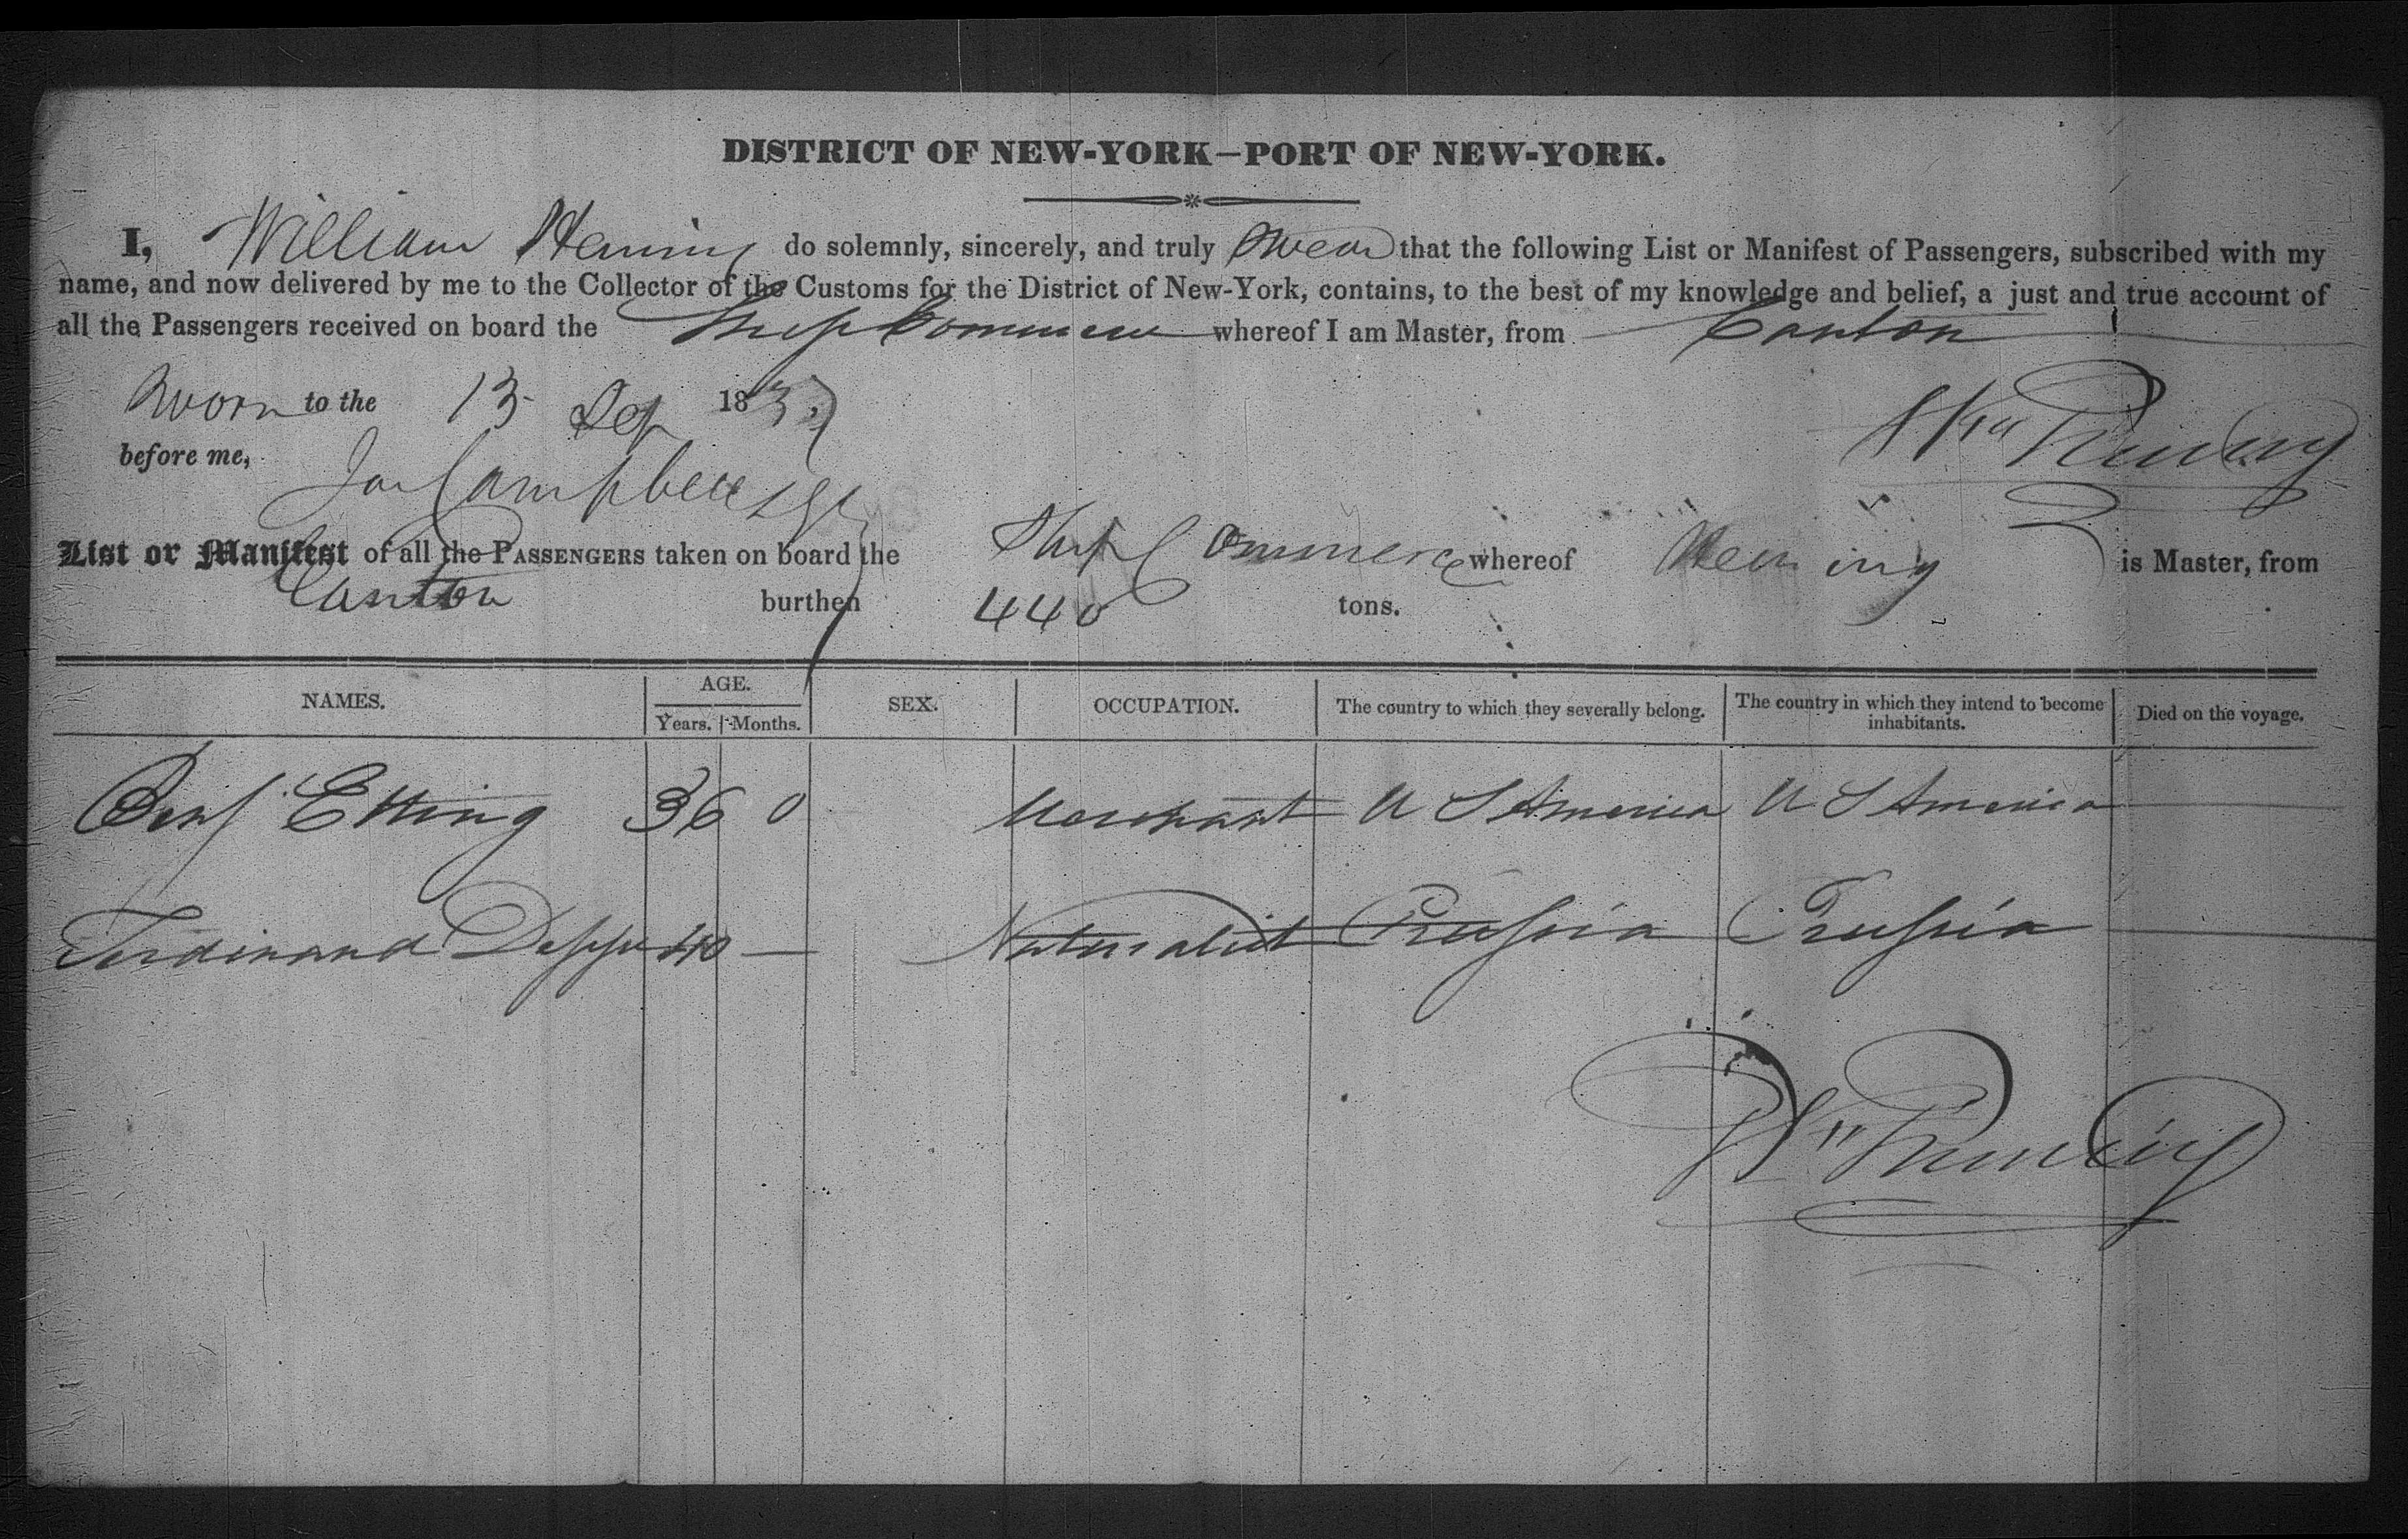 DISTRICT OF NEW-YORK—PORT OF NEW-YORK.
I, William do solemnly, sincerely, and truly Swear that the following List or Manifest of Passengers, subscribed with my
name, and now delivered by me to the Collector of the Customs for the District of New-York, contains, to the best of my knowledge and belief, a just and true account of
all the Passengers received on board the Ship Commerce whereof I am Master, from Canton
Sworn to the 13 Sep 183
before me, Campbell
List or Manifest of all the PASSENGERS taken on board the Ship Commerce whereof is Master, from
Canton burthen 440 tons.
NAMES. AGE. Years. Months. SEX. OCCUPATION. The country to which they severally belong. The country in which they intend to become inhabitants. Died on the voyage.
Benj Etting 36 0 Merchant U S America U S America
Ferdinand Deppe 40 — Naturalist Prussia Prussia
Wm